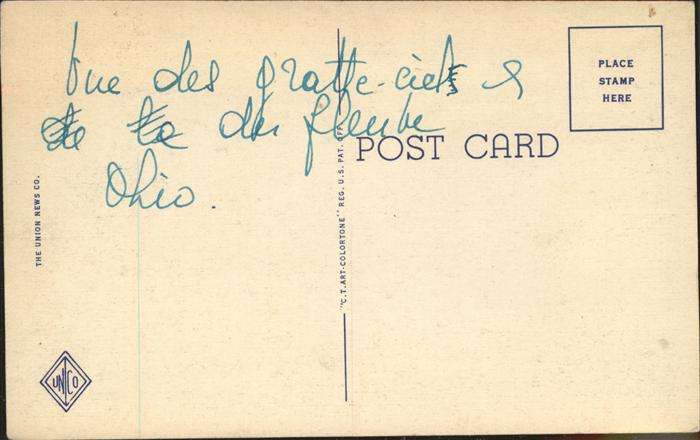 Vue des gratte-ciels &
de la du fleuve
Ohio.
PLACE
STAMP
HERE
POST CARD
THE UNION NEWS CO.
"C.T. ART-COLORTONE" REG. U.S. PAT. OFF.
UNCO